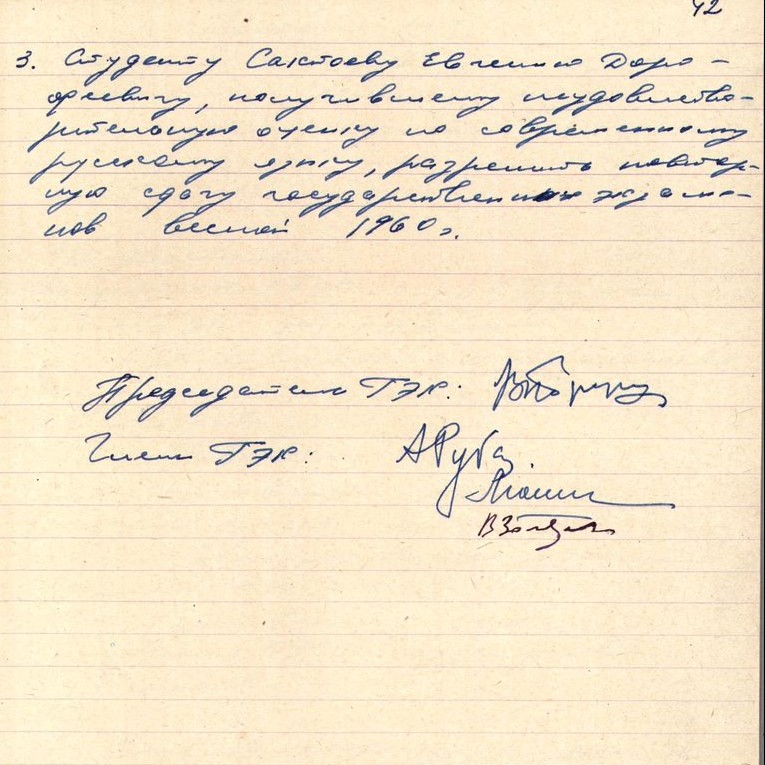 42
3. Студенту Сактоеву Евгению Доро-
феевичу, получившему неудовлетво-
рительную оценку по современному
русскому языку, разрешить повтор-
ную сдачу государственных экзаме-
нов весной 1960 г.
Председатель ГЭК:
Члены ГЭК: